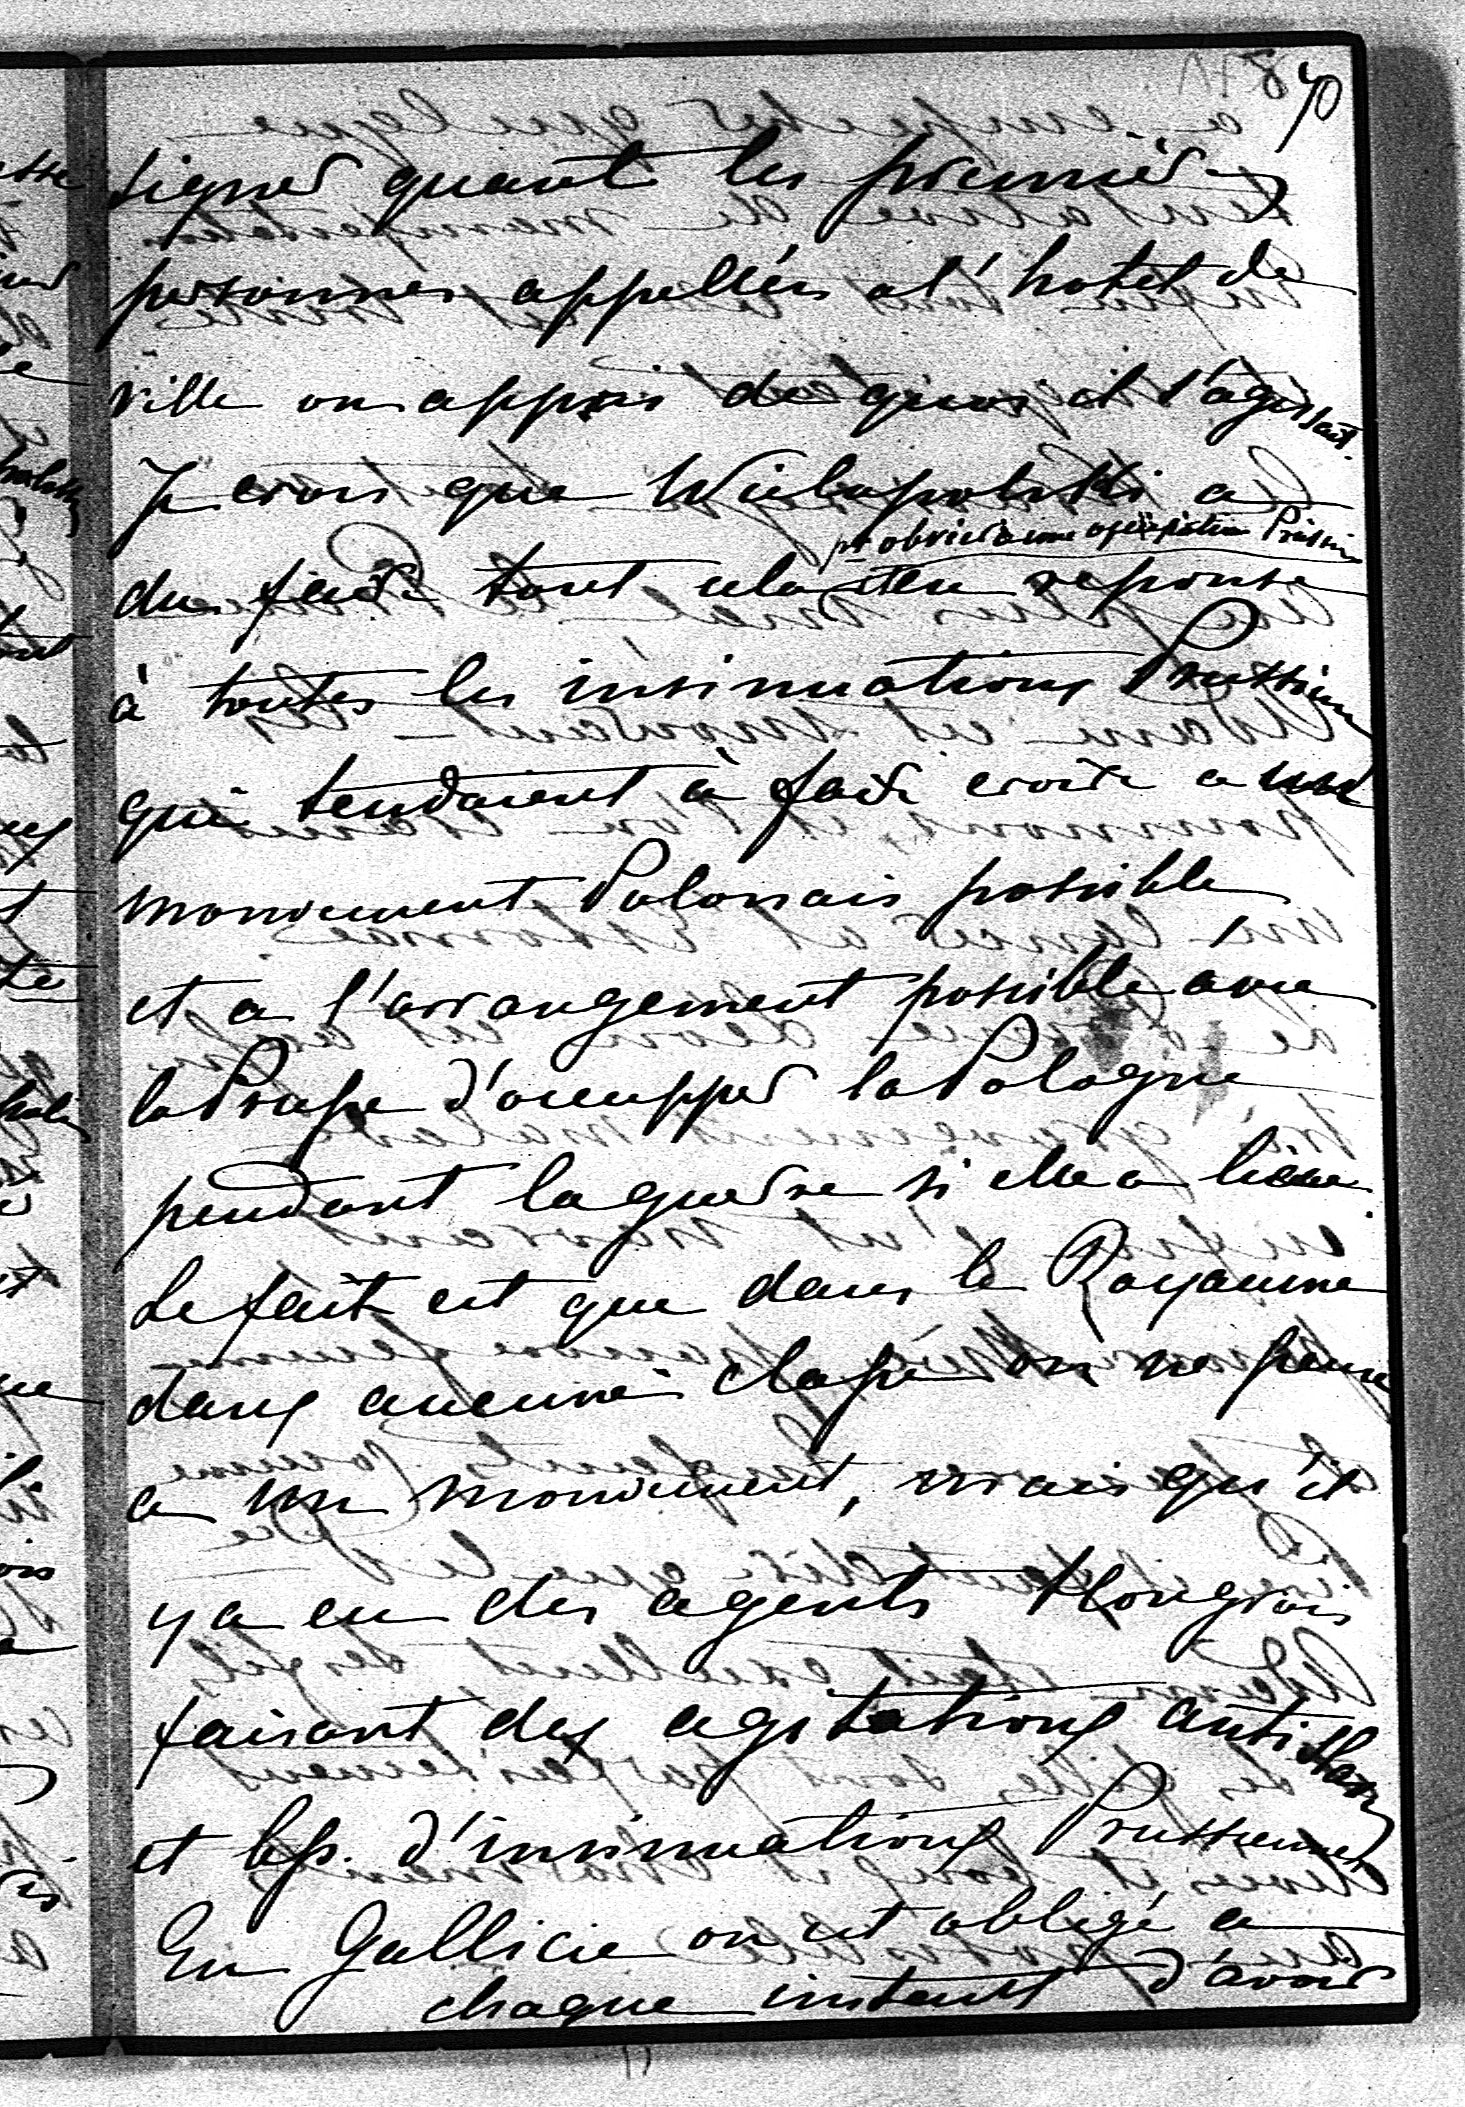 70
signer quant les premières
personnes appellées al'hotel de
ville on appris de quoi il s'agissait.
Je crois que Wielopolski a
pr obvier à une occupation Prussien
du faire tout cela en reponse
à toutes les insinuations Prussien
qui tendaient à faire croire a un
mouvement Polonais possible
et a l'arrangement possible avec
la Prusse d'occupper la Pologne
pendant la guerre si elle a lieu.
Le fait est que dans le Royaume
dans aucune classe on ne pense
a un mouvement, mais qu'il
y a eu des agents Hongrois
faisant des agitations anti slaves
et bp. d'insinuations Prussiennes
En Gallicie on est obligé a
chaque instant d'avoir